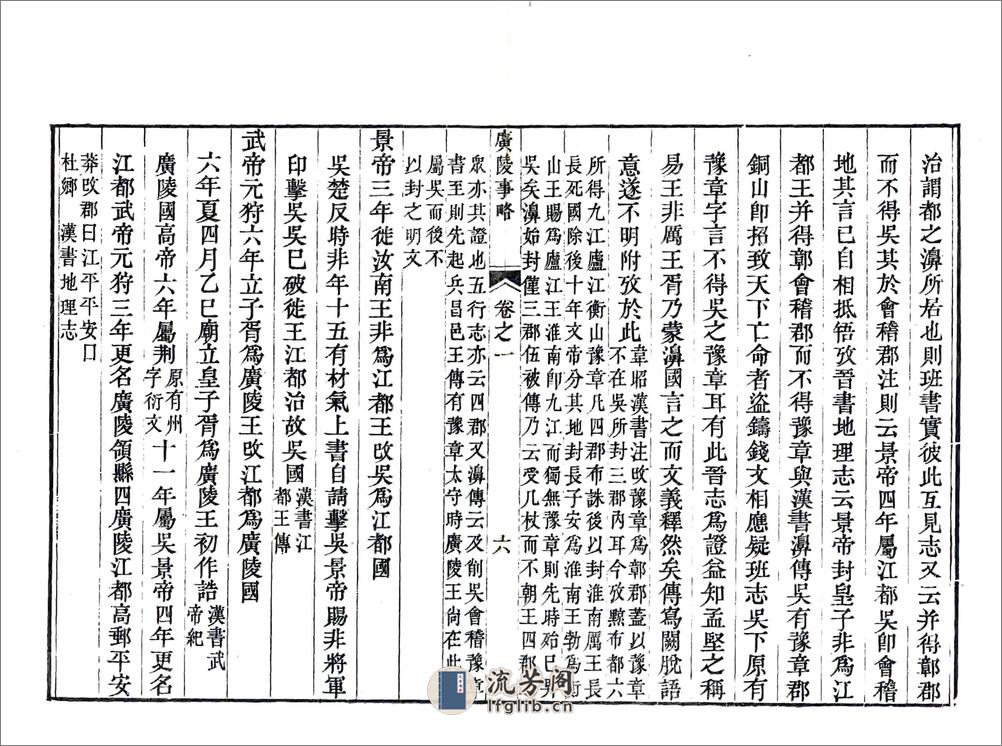 治謂都之濞所居也則班書實彼此互見志又云并得鄣郡
而不得吳其於會稽郡注則云景帝四年屬江都吳卽會稽
地其言已自相抵牾攷晉書地理志云景帝封皇子非爲江
都王并得鄣會稽郡而不得豫章與漢書濞傳吳有豫章郡
銅山卽招致天下亡命者盜鑄錢文相應疑班志吳下原有
豫章字言不得吳之豫章耳有此晉志爲證益知孟堅之稱
易王非厲王胥乃蒙濞國言之而文義釋然矣傳寫闕脫語
意遂不明附攷於此
韋昭漢書注改豫章爲鄣郡蓋以豫章
不在吳所封三郡內耳今攷黥布都六
所得九江廬江衡山豫章凡四郡布誅後以封淮南厲王長
長死國除後十年文帝分其地封長子安爲淮南王勃爲衡
山王賜爲廬江王淮南卽九江而獨無豫章則先時殆已畀
吳矣濞始封僅三郡伍被傳乃云受几杖而不朝王四郡
廣陵事略
卷之一
六
衆亦其證也五行志亦云四郡又濞傳云及削吳會稽豫章
書至則先起兵昌邑王傳有豫章太守時廣陵王尙在此
屬吳而後不
以封之明文
景帝三年徙汝南王非爲江都王改吳爲江都國
吳楚反時非年十五有材氣上書自請擊吳景帝賜非將軍
印擊吳吳已破徙王江都治故吳國
漢書江
都王傳
武帝元狩六年立子胥爲廣陵王改江都爲廣陵國
六年夏四月乙巳廟立皇子胥爲廣陵王初作誥
漢書武
帝紀
廣陵國高帝六年屬荊
原有州
字衍文
十一年屬吳景帝四年更名
江都武帝元狩三年更名廣陵領縣四廣陵江都高郵平安
莽改郡曰江平平安曰
杜鄉 漢書地理志
流芳阁
lfglib.cn